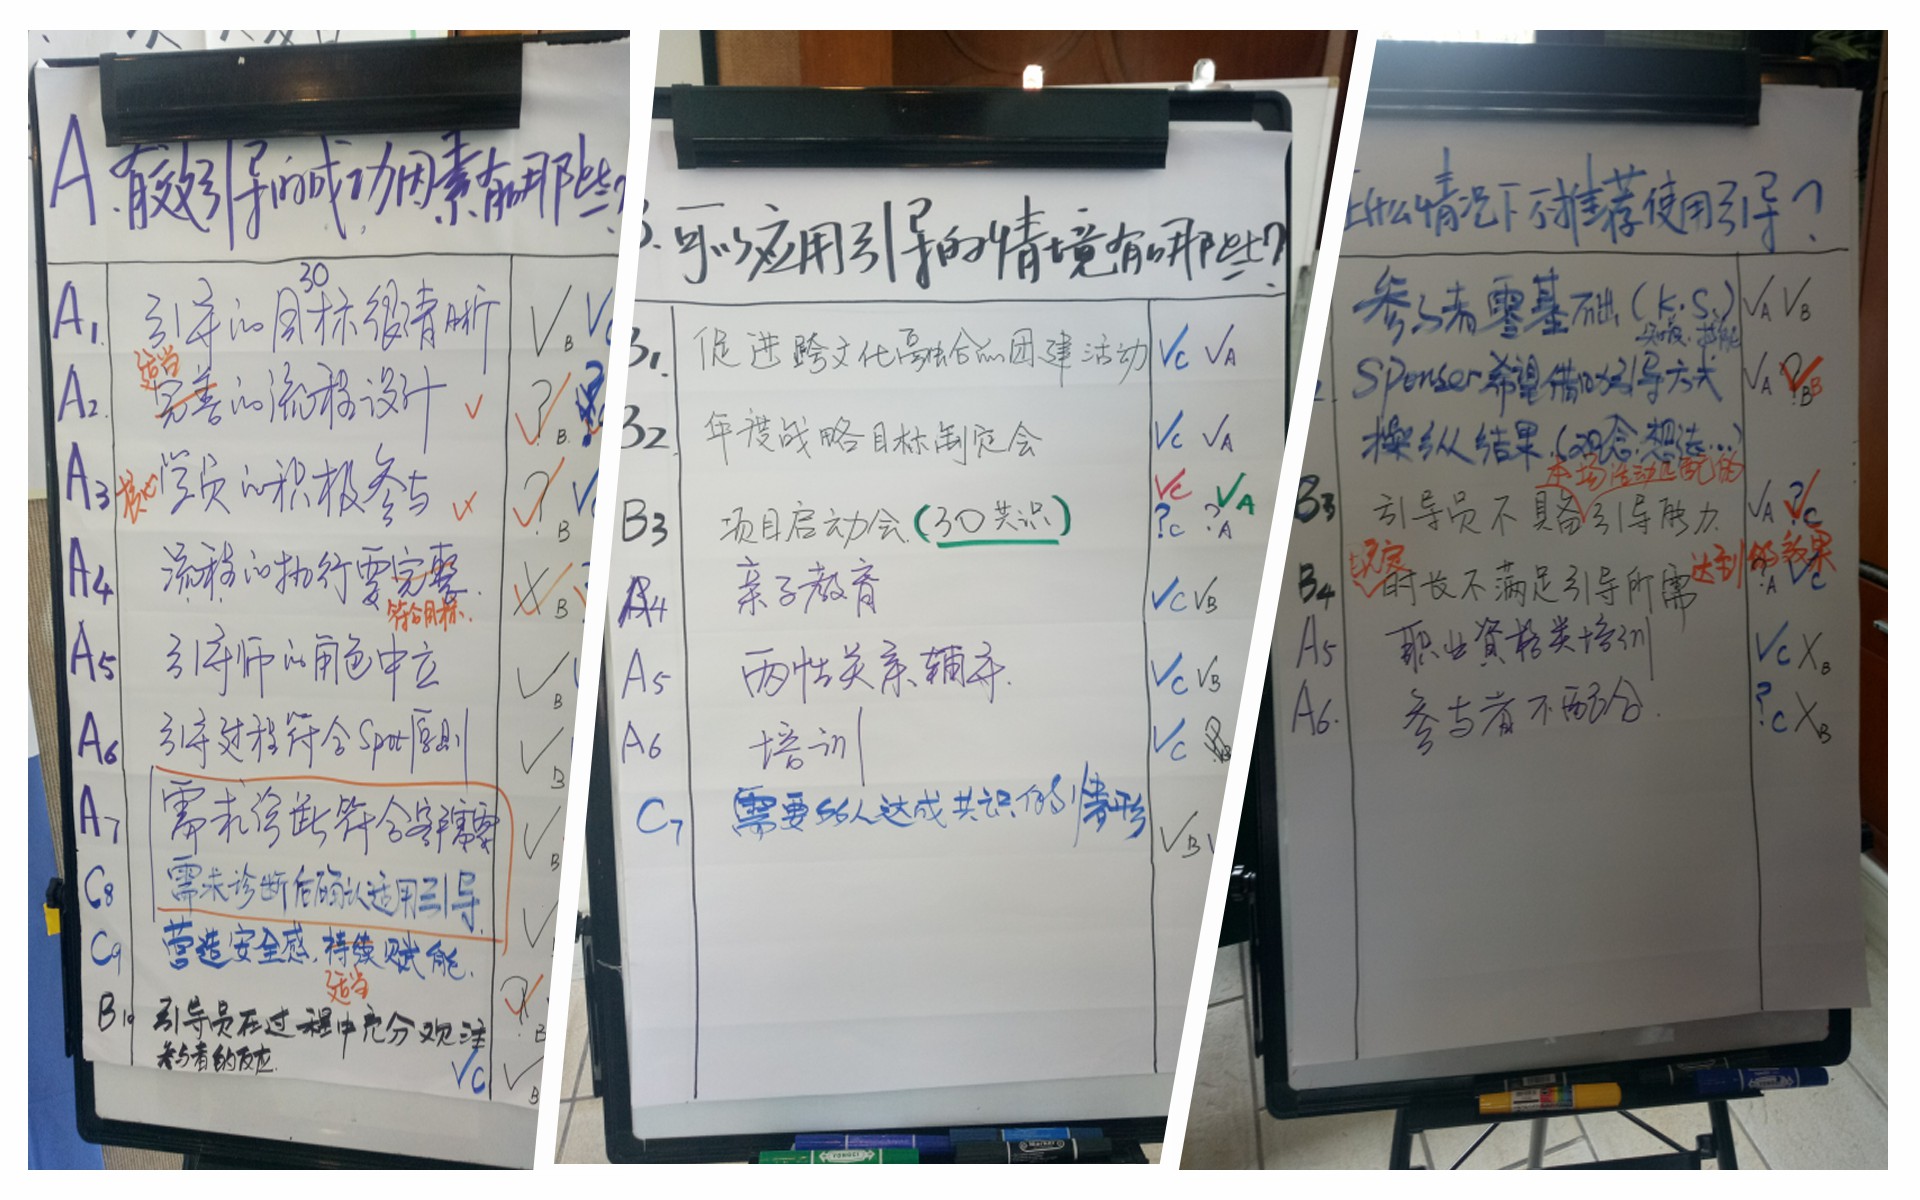 A.有效引导的成功因素有哪些?
30
A1. 引导的目标很清晰 √B √
适当
A2. 完善的流程设计 √ ? √ B.
A3 核心 学员的积极参与 √ ? √ B √
A4 流程的执行要完整. X √ B
符合目标.
A5 引导师的角色中立 √B
A6 引导过程符合Spot原则 √B
A7 需求诊断符合客户需要 √B
C8 需求诊断后确认适用引导. √
C9 营造安全感.持续赋能. ? √ B
适当
B10 引导员在过程中充分观注
参与者的反应. √C √B
B.可以应用引导的情境有哪些?
B1. 促进跨文化融合的团建活动 √C √A
B2. 年度战略目标制定会 √C √A
√C √A
B3 项目启动会.(30共识) ?C ?A
A4 亲子教育 √C √B
A5 两性关系辅导. √C √B
A6 培训 √C
C7 需要多人达成共识的情形 √B
什么情况下不推荐使用引导?
参与者零基础(K.S.) √A √B
知识、技能
Sponser希望借以引导方式 √A ? √ B
操纵结果.(观念.想法...)
本场活动匹配的
B3 引导员不具备引导能力 √A ? √ C
既定 达到的效果
B4 时长不满足引导所需 ?A √C
A5 职业资格类培训 √C XB
A6. 参与者不配合. ?C XB